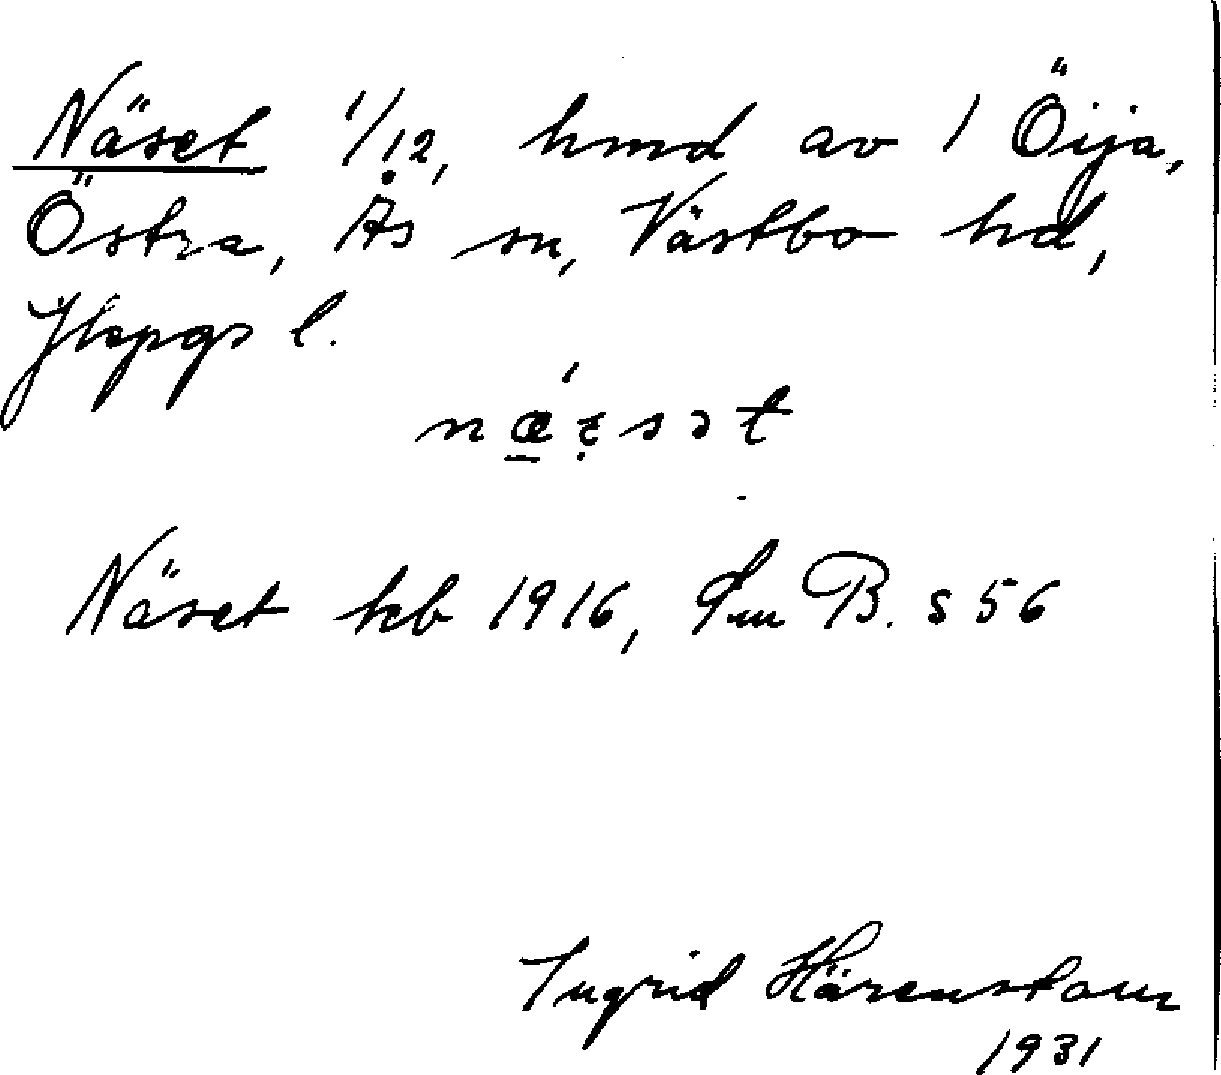 Näset 1/12, hmd av 1 Öija,
Östra, Ås sn, Västbo hd,
Jkpgs l.
Näset kb 1916, Sm B. s 56
Ingrid Härenstam
1931